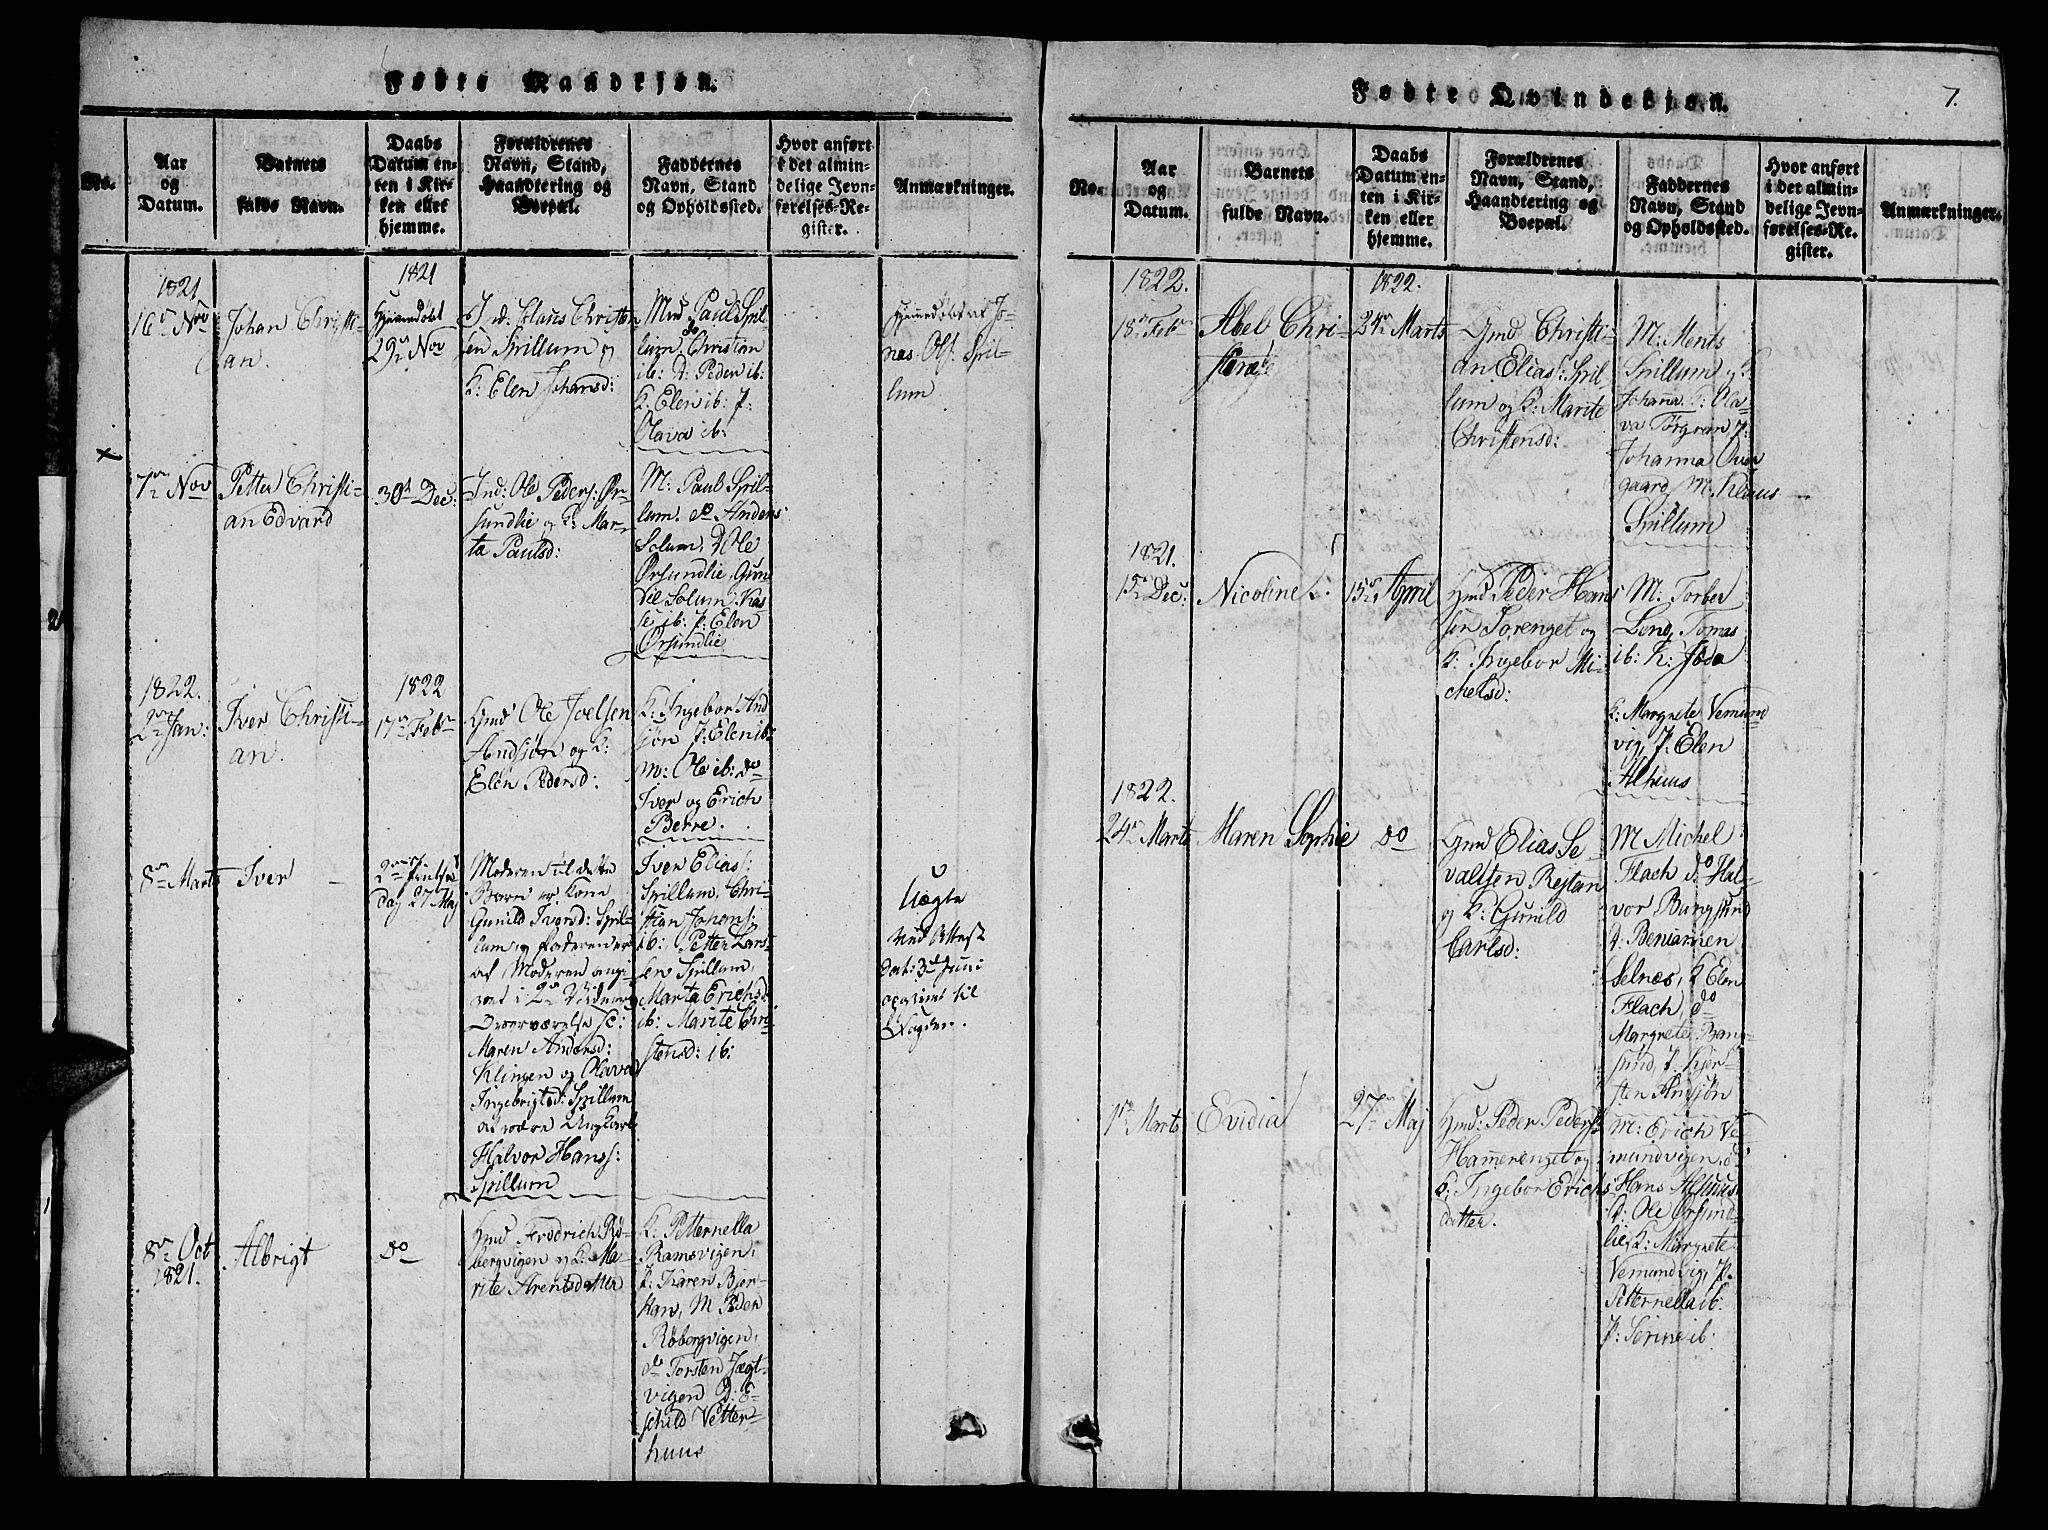 Fødte Mandkjøn.
No.
Aar
og
Datum.
Barnets
fulde Navn.
Daabs
Datum en-
ten i Kir-
ken eller
hjemme.
Forældrenes
Navn, Stand,
Haandtering og
Boepæl.
Faddernes
Navn, Stand
og Opholdssted.
Hvor anført
i det almin-
delige Jevn-
førelses-Re-
gister.
Anmærkninger.
1821
16de Nov
Johan Christi-
an.
1821
Hjemmedøbt
29de Nov
Ind: Klaus Christen
sen Spillum og
K: Elen Johansd:
Md Paul Spil-
lum do Christian
ib: D: Peder ib:
K: Elen ib: P:
Olava ib:
Hjemmedøbt af Jo-
nas Ols: Spil-
lum
7de Nov
Petter Christi-
an Edvard
30te Dec:
Ind: Ole Peders: Ør-
sundlie og K: Mar-
ta Paulsd:
M: Paul Spil-
lum. do Anders
Solum, D Ole
Ørsundlie, Gun
ild Solum,
ib: P: Elen
Ørsundlie
1822.
2de Jan:
Iver Christi-
an.
1822
17de Feb
Gmd Ole Joelsen
Andsjøn og K:
Elen Pedersd:
K: Ingebor And
sjøn P: Elen ib:
M: Ole ib: do
Iver og Erich
Berre.
8de Marts
Iver
2den Pintse
dag 27 Maj
Moderen til dette
Barn er Kone
Gunild Iversd: Spil-
lum og Faderen er
af Moderen angi
vet i 2de Vidners
Overværelse sc:
Maren Andersd:
Klingen og Olava
Ingebrigtsd: Spillum
at være Ungkarl
Halvor Hanss:
Spillum
Iver Elias:
Spillum, Chri-
stian Johans:
ib: Petter Lars-
sen Spillum,
Marta Erichsd:
ib: Marite Chri
stensd: ib:
Uægte
ved Attest
dat: 3d Juni
til
Fogden.
8de Oct
1821.
Albrigt
do
Gmd Fredrich Rø-
bergvigen og K: Ma-
rite Arentsdatter
K: Petternella
Ramsvigen,
P: Karen Bjer
kan, M Peder
Røbergvigen,
do Torsten Jægt-
vigen D: E-
schild Vetter-
huus
Fødte Qvindekjøn.
7.
No.
Aar
og
Datum.
Barnets
fulde Navn.
Daabs
Datum en-
ten i Kir-
ken eller
hjemme.
Forældrenes
Navn, Stand,
Haandtering og
Boepæl.
Faddernes
Navn, Stand
og Opholdssted.
Hvor anført
i det almin-
delige Jevn-
førelses-Re-
gister.
Anmærkninger.
1822.
18de Feb
Abel Chri-
1822.
24de Marts
Gmd Christi-
an Elias: Spil
lum og K: Marite
Christensd:
M: Ments
Spillum og K:
Johanna K: Ola-
va Törgran P:
Johanna Over
gaard, M: Klaus
Spillum
1821.
15de Dec:
Nicoline
15de April
Gmd Peder Hans
sen Sorenget og
K: Ingebor Mi-
chelsd:
M: Torber
Lund, Tomas
ib: K:
K: Margrete Vemund
vig, P: Elen
Alhuus
1822.
24de Marts
Maren Sophie
do
Gmd Elias Se-
valtsen Rejtan
og K: Gunild
Carlsd:
M Michel
Flach do Hal-
vor Bangsund
D: Beniamen
Selnæs, K Elen
Flach, do
Margrete Bang
sund, P. Kjer-
sten Andsjøn
1ste Marts
Evidia
27de Maj
Gmd: Peder Peders:
Hamerenget og
K: Ingebor Erichs
datter.
M: Erich Ve-
mundvigen, do
Hans Alhuus
D: Ole Ørsund-
lie, K: Margrete
Vemundvig, P.
Petternella ib:
P: Serine ib: